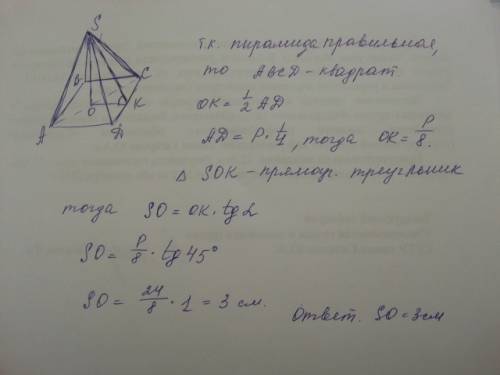 S
B
C
O
K
A
D
т.к. пирамида правильная,
то ABCD - квадрат
OK = 1/2 AD
AD = P · 1/4, тогда OK = P/8.
Δ SOK - прямоуг. треугльник
тогда SO = OK · tg α
SO = P/8 · tg 45°
SO = 24/8 · 1 = 3 см.
Ответ. SO = 3 см